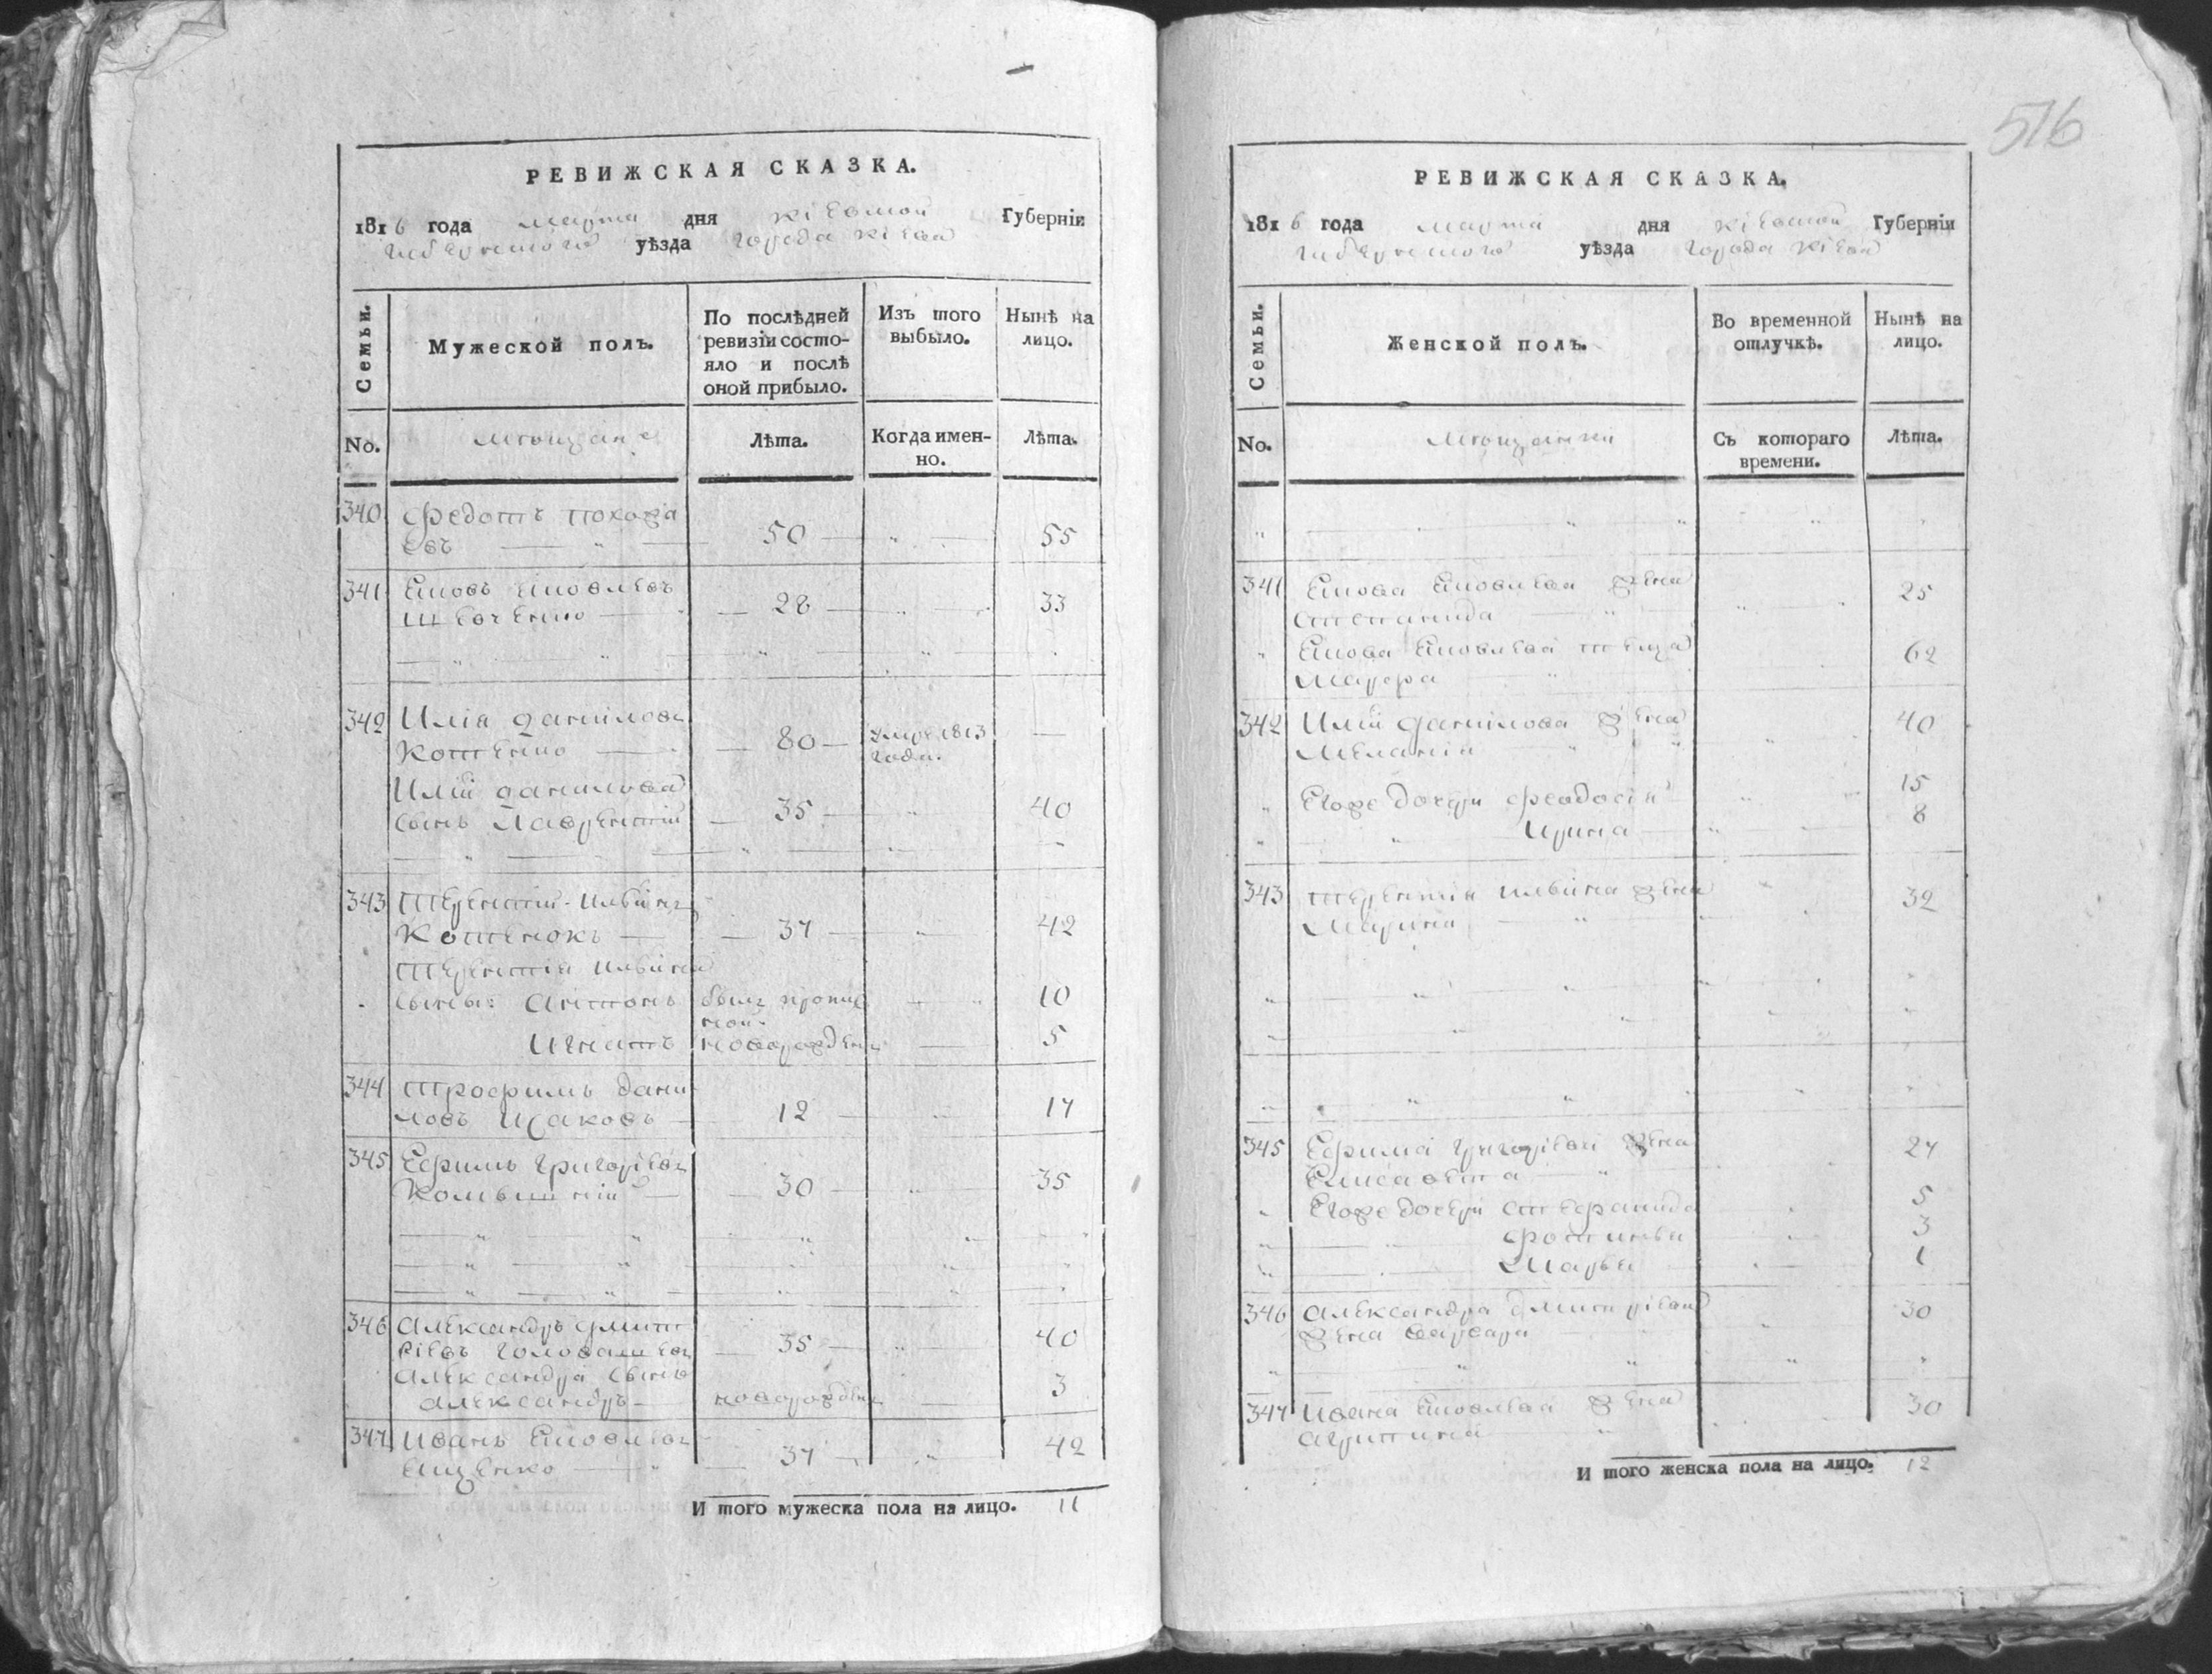 РЕВИЖСКАЯ СКАЗКА.
1816 года марта дня кіевской Губерніи
уѣзда города кіева
Семьи.
Мужеской полъ.
По послѣдней
ревизіи состо-
яло и послѣ
оной прибыло.
Изъ того
выбыло.
Нынѣ на
лицо.
No.
мещане
Лѣта.
Когда имен-
но.
Лѣта.
340 Федотъ
евъ 50 55
341
Шевченко 28 33
342 Илія Даниловъ
Котенко 80 умре 1813
года.
Иліи Данилова
сынъ Лаврентій 35 40
343 Терентій Ильинъ
Котенокъ 37 42
Терентія Ильина
сыны: Антонъ былъ пропис
ной 10
Игнатъ новорожденъ 5
344 Трофимъ Дани
ловъ Исаковъ 12 17
345 Ефимъ Григоріевъ
30 35
346 Александръ Дмит
ріевъ 35 40
Александра сынъ
Александръ новорожденъ 3
347 Иванъ
Ещенко 37 42
И того мужеска пола на лицо. 11
516
РЕВИЖСКАЯ СКАЗКА.
1816 года марта дня кіевской Губерніи
уѣзда города кіева
Семьи.
Женской полъ.
Во временной
отлучкѣ.
Нынѣ на
лицо.
No.
мещанки
Съ котораго
времени.
Лѣта.
341 жена
Степанида 25
теща
62
342 Иліи Данилова жена
Меланія 40
Егоже дочери Феодосія 15
Ирина 8
343 Терентія Ильина жена
Марина 32
345 Ефима Григоріева жена
Елисавета 27
Егоже дочери Стефанида 5
Фотинья 3
Марья 1
346 Александра Дмитріева
жена Варвара 30
347 Ивана жена
Агрипина 30
И того женска пола на лицо. 12